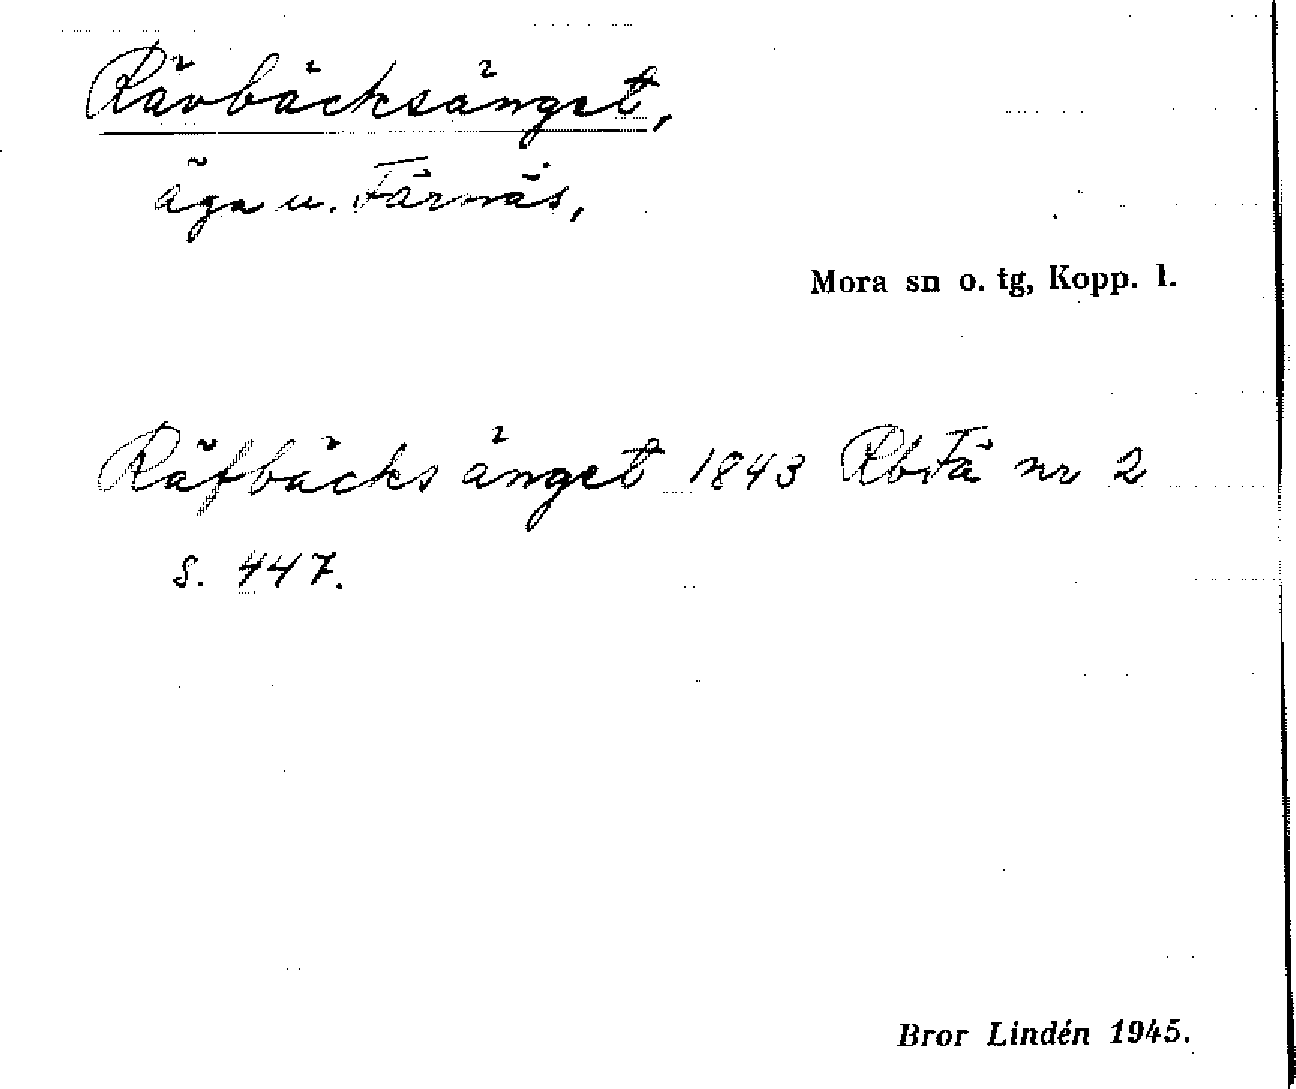 Rävbäcksänget,
äga u. Färnäs,
Mora sn o. tg, Kopp. l.
Räfbäcksänget 1843 RbFä nr 2
s. 447.
Bror Lindén 1945.